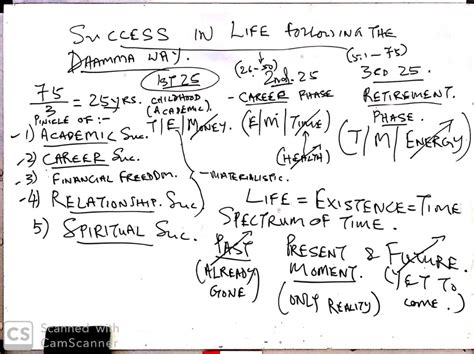 SUCCESS IN LIFE FOLLOWING THE
DHAMMA WAY.
75/3 = 25 yrs.
1ST 25
CHILDHOOD
(ACADEMIC)
T/E/MONEY.
(26-50)
2nd. 25
- CAREER PHASE
(E/M/TIME)
(HEALTH)
(51-75)
3RD 25.
RETIREMENT
PHASE.
(T/M/ENERGY)
PINICLE OF :-
-1) ACADEMIC Suc.
-2) CAREER Suc.
-3) FINANCIAL FREEDOM.
-4) RELATIONSHIP. Suc
5) SPIRITUAL Suc.
- MATERIALISTIC.
LIFE = EXISTENCE = TIME
SPECTRUM OF TIME.
PAST
(ALREADY
GONE)
PRESENT
MOMENT.
(ONLY REALITY)
& FUTURE.
(YET TO
COME.)
CS Scanned with
CamScanner